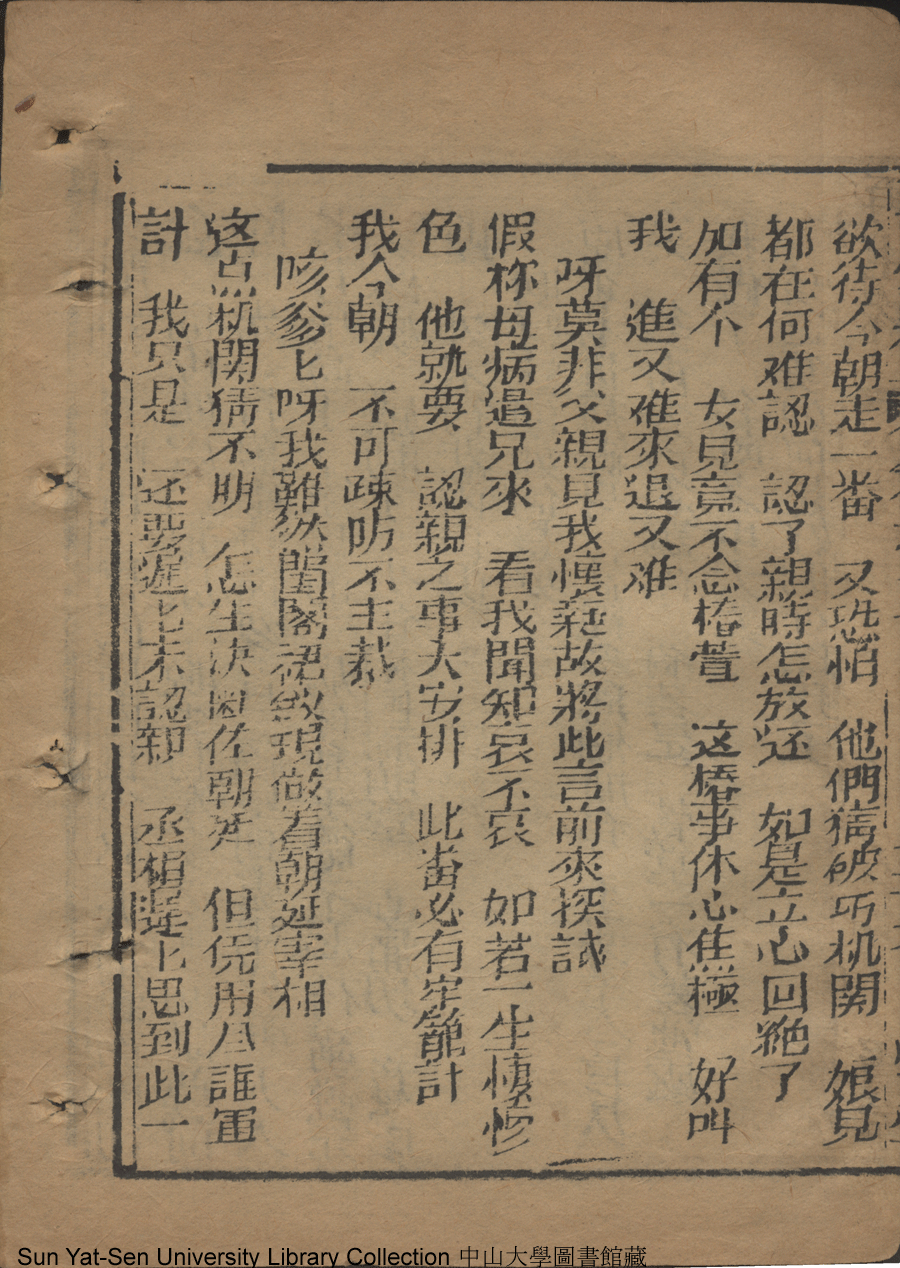 欲待今朝走一番　又恐怕　他們猜破巧机関　娘見
都在何难認　認了親時怎放还　如是立心回絶了
加有个　女見竟不念椿萱　这樁事休心焦極　好叫
我　進又难來退又难
呀莫非父親見我懷疑故將此言前來探試
假称母病遣兄來　看我聞知哀不哀　如若一生悽慘
色　他就要　認親之事大安排　此番必有牢籠計
我今朝　不可疎防不主裁
咳爹匕呀我雖然閨閣裙釵現做着朝廷宰相
这点机関猜不明　怎生決断佐朝廷　但凭用尽誰軍
計　我只是　还要遲匕未認親　丞相遲卜思到此一
Sun Yat-Sen University Library Collection 中山大學圖書館藏